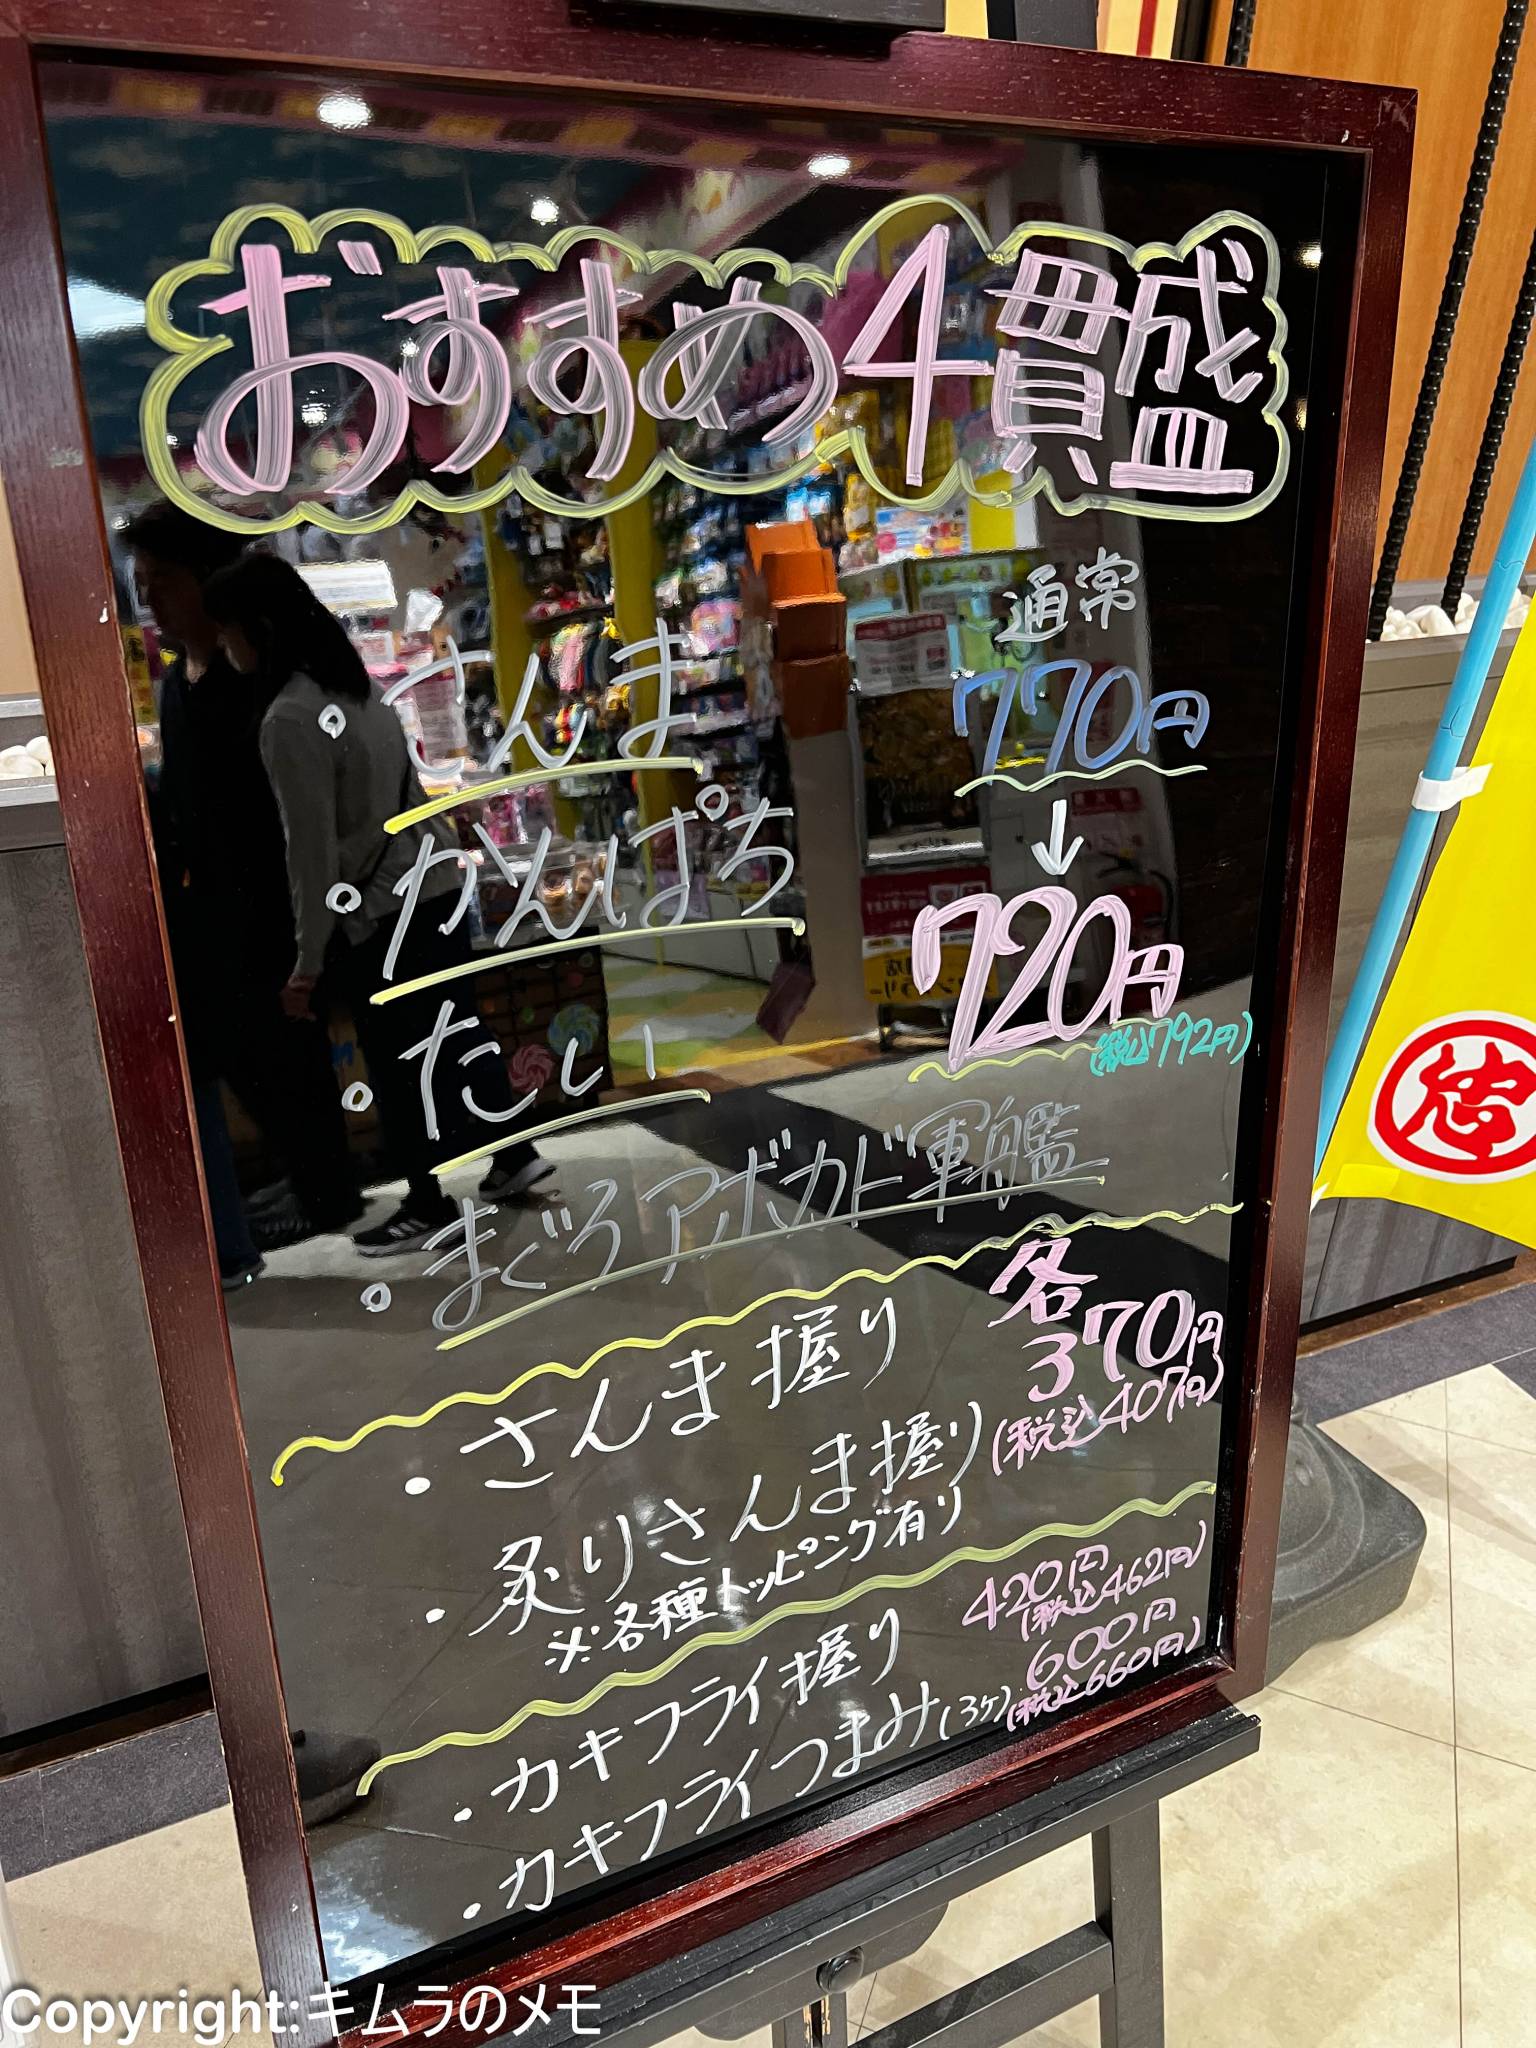 おすすめ4貫盛
通常
770円
↓
720円
(税込792円)
・さんま
・かんぱち
・たい
・まぐろアボカド軍艦
・さんま握り
・炙りさんま握り
各
370円
(税込407円)
※各種トッピング有り
・カキフライ握り
420円
(税込462円)
・カキフライつまみ(3ケ)
600円
(税込660円)
忠
Copyright:キムラのメモ